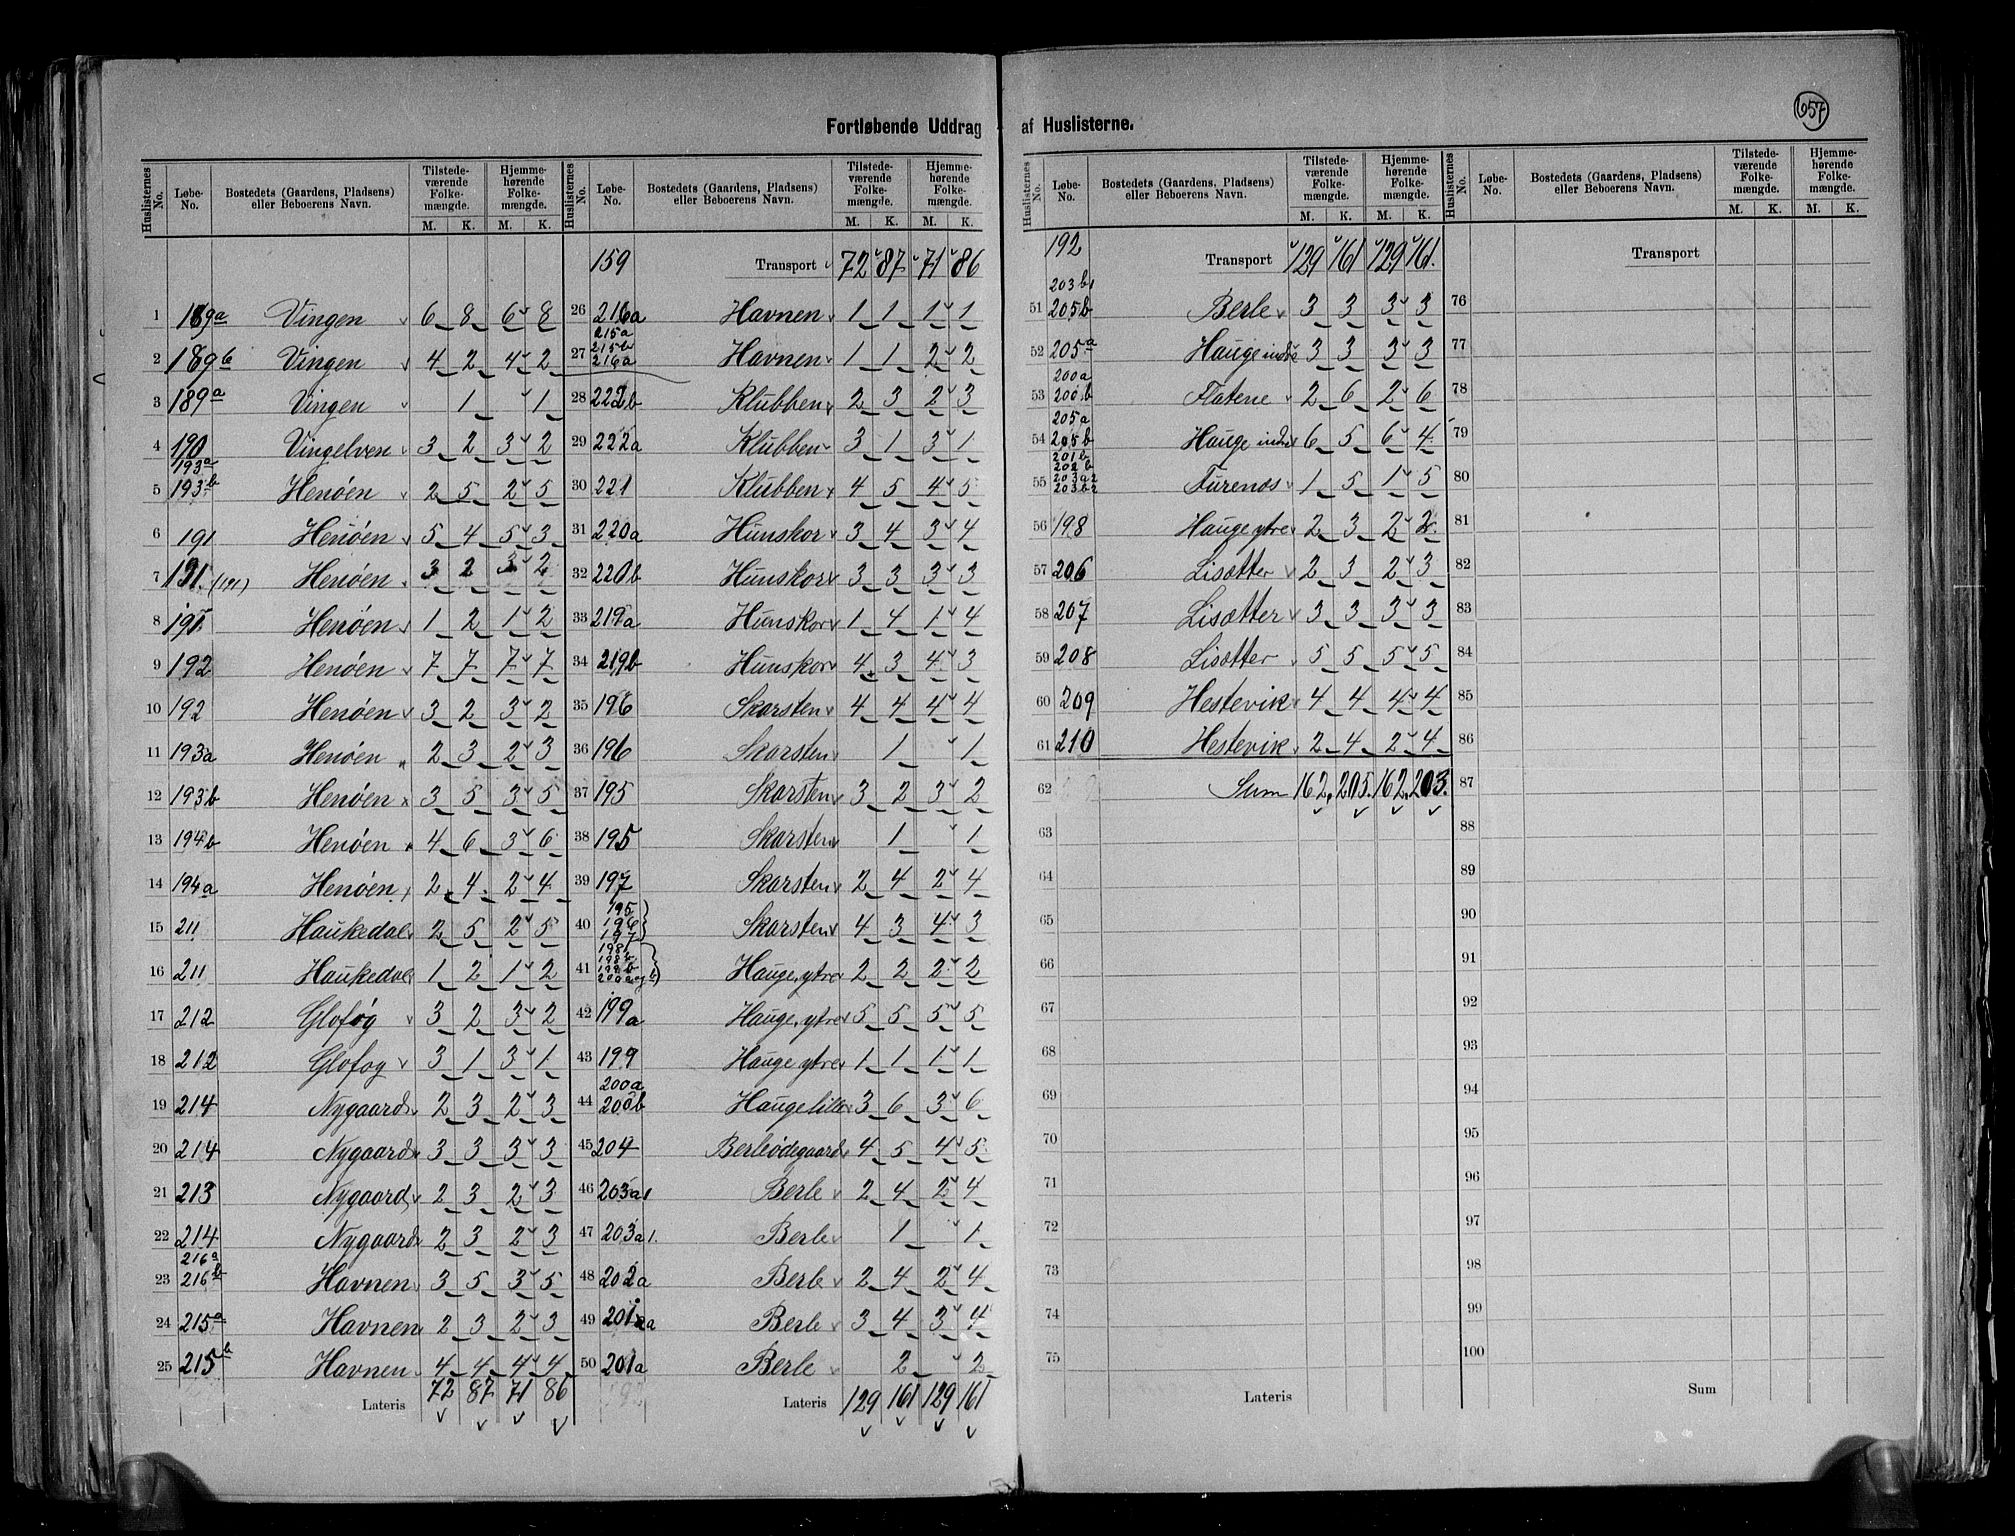 657
Fortløbende Uddrag af Huslisterne.
Huslisternes No. Løbe-No. Bostedets (Gaardens, Pladsens) eller Beboerens Navn. Tilstedeværende Folkemængde. M. K. Hjemmehørende Folkemængde. M. K.
1 189a Vingen 6 8 6 8
2 189b Vingen 4 2 4 2
3 189a Vingen 1 1
4 190 Vingelven 3 2 3 2
5 193a 193b Henøen 2 5 2 5
6 191 Henøen 5 4 5 3
7 191 (191) Henøen 3 2 3 2
8 191 Henøen 1 2 1 2
9 192 Henøen 7 7 7 7
10 192 Henøen 3 2 3 2
11 193a Henøen 2 3 2 3
12 193b Henøen 3 5 3 5
13 194b Henøen 4 6 3 6
14 194a Henøen 2 4 2 4
15 211 Haukedal 2 5 2 5
16 211 Haukedal 1 2 1 2
17 212 Gloføg 3 2 3 2
18 212 Gloføg 3 1 3 1
19 214 Nygaard 2 3 2 3
20 214 Nygaard 3 3 3 3
21 213 Nygaard 2 3 2 3
22 214 Nygaard 2 3 2 3
23 216a 216b Havnen 3 5 3 5
24 215a Havnen 2 3 2 3
25 215b Havnen 4 4 4 4
Lateris 72 87 71 86
Huslisternes No. Løbe-No. Bostedets (Gaardens, Pladsens) eller Beboerens Navn. Tilstedeværende Folkemængde. M. K. Hjemmehørende Folkemængde. M. K.
159 Transport 72 87 71 86
26 216a Havnen 1 1 1 1
27 215a 215b 216a Havnen 1 1 2 2
28 222b Klubben 2 3 2 3
29 222a Klubben 3 1 3 1
30 221 Klubben 4 5 4 5
31 220a Hunskor 3 4 3 4
32 220b Hunskor 3 3 3 3
33 219a Hunskor 1 4 1 4
34 219b Hunskor 4 3 4 3
35 196 Skarsten 4 4 4 4
36 196 Skarsten 1 1
37 195 Skarsten 3 2 3 2
38 195 Skarsten 1 1
39 197 Skarsten 2 4 2 4
40 195 196 197 Skarsten 4 3 4 3
41 Hauge, ytre 2 2 2 2
42 199a Hauge, ytre 5 5 5 5
43 199 Hauge ytre 1 1 1 1
44 200a 200b Hauge lille 3 6 3 6
45 204 Berleødegaard 4 5 4 5
46 203a1 Berle 2 4 2 4
47 203a1. Berle 1 1
48 202a Berle 2 4 2 4
49 Berle 3 4 3 4
50 201a Berle 2 2
Lateris 129 161 129 161
Huslisternes No. Løbe-No. Bostedets (Gaardens, Pladsens) eller Beboerens Navn. Tilstedeværende Folkemængde. M. K. Hjemmehørende Folkemængde. M. K.
192 Transport 129 161 129 161.
51 203b1 205b Berle 3 3 3 3
52 205a Hauge indre 3 3 3 3
53 200a 200b Flatene 2 6 2 6
54 205a 205b Hauge indre 6 5 6 4
55 201b 202b 203a2 203b2 Furenes 1 5 1 5
56 198 Hauge ytre 2 3 2 2
57 206 Lisætter 2 3 2 3
58 207 Lisætter 3 3 3 3
59 208 Lisætter 5 5 5 5
60 209 Hestevik 4 4 4 4
61 210 Hestevik 2 4 2 4
62 Sum 162. 205. 162. 203.
63
64
65
66
67
68
69
70
71
72
73
74
75
Lateris
Huslisternes No. Løbe-No. Bostedets (Gaardens, Pladsens) eller Beboerens Navn. Tilstedeværende Folkemængde. M. K. Hjemmehørende Folkemængde. M. K.
Transport
76
77
78
79
80
81
82
83
84
85
86
87
88
89
90
91
92
93
94
95
96
97
98
99
100
Sum